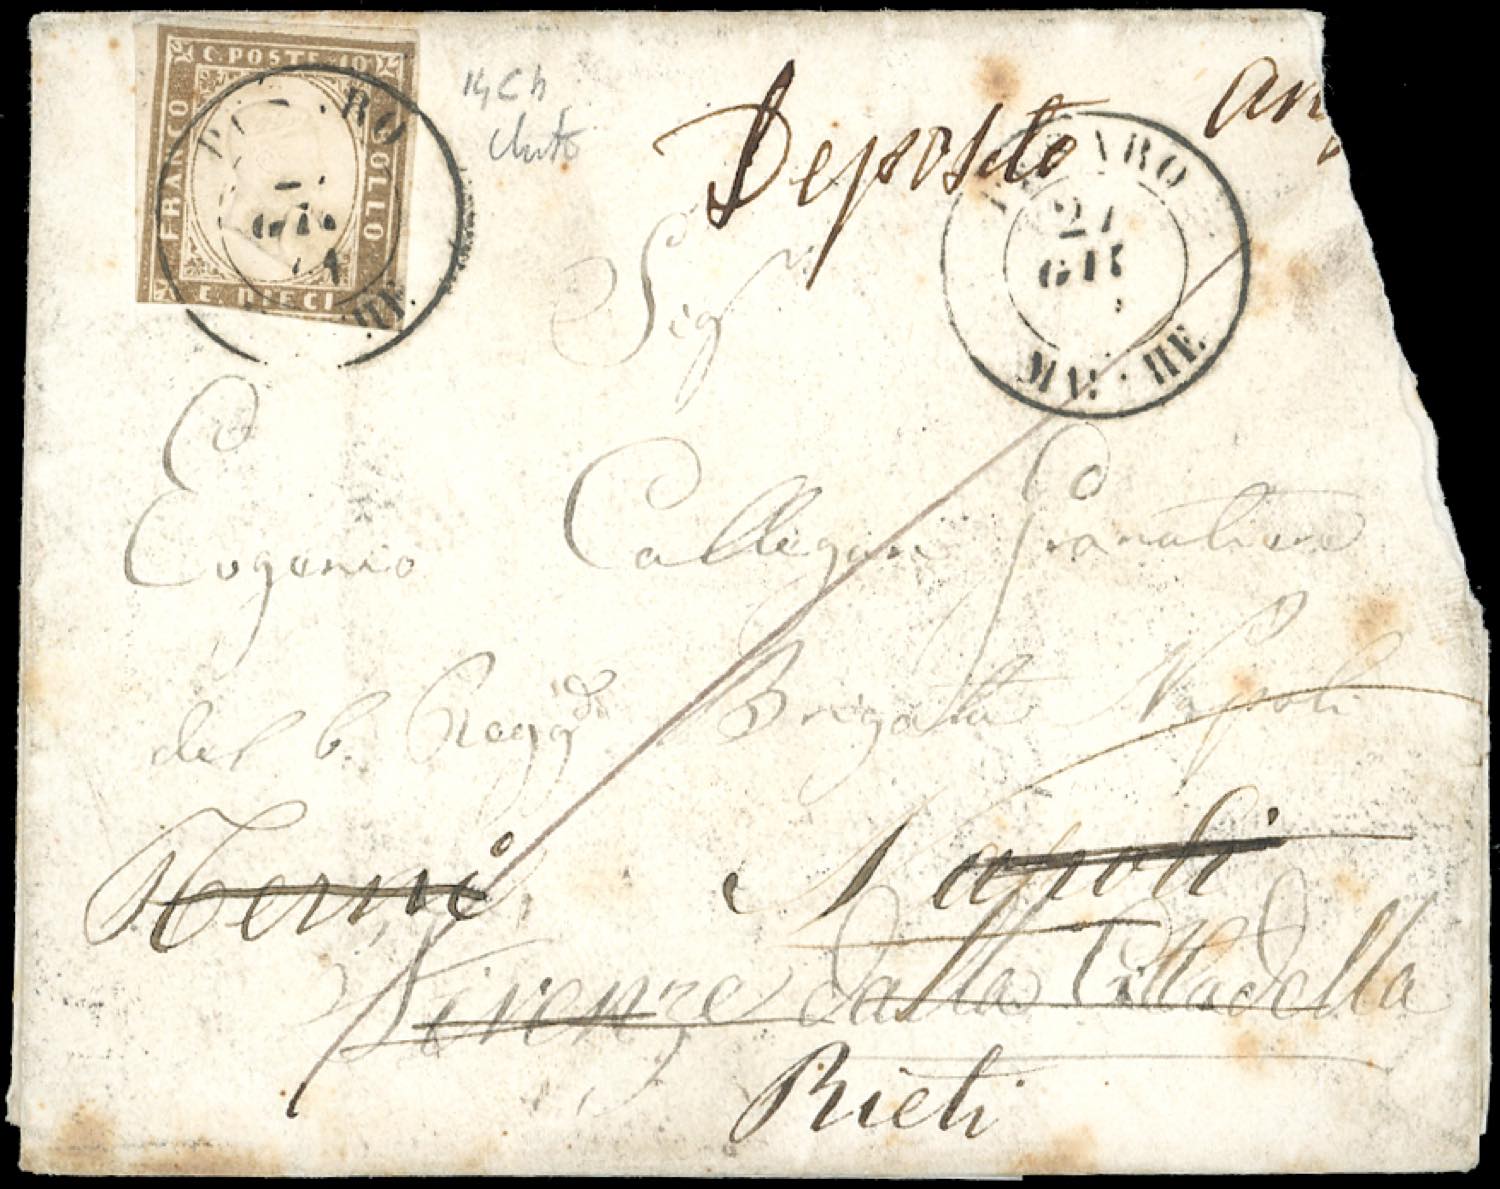 C. POSTE 10
FRANCO
BOLLO
E. DIECI
14Ch
Deposito
21
GIU
MARCHE.
Sigr
Eugenio Callegari Granatiere
del 6. Reggto Brigata Napoli
Terni Napoli
Firenze dalla Cittadella
Rieti